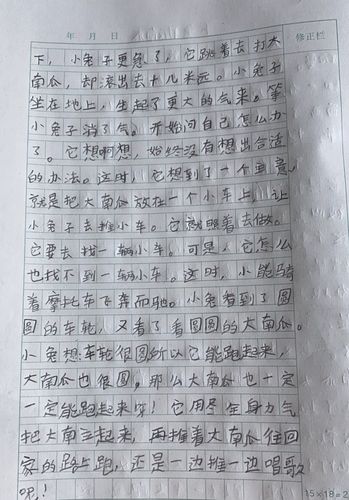 年 月 日 修正栏
下，小兔子更急了，它跳着去打大
南瓜，却滚出去十几米远。小兔子
坐在地上，生起了更大的气来。等
小兔子消了气。开始问自己怎么办
了。它想啊想，始终没有想出合适
的办法。这时，它想到了一个主意，
就是把大南瓜放在一个小车上，让
小兔子去推小车。它就照着去做。
它要去找一辆小车。可是，它怎么
也找不到一辆小车。这时，小熊骑
着摩托车飞奔而驰。小兔看到了圆
圆的车轮，又看了看圆圆的大南瓜。
小兔想：车轮很圆所以它能跑起来，
大南瓜也很圆，那么大南瓜也一定
一定能跑起来呀！它用尽全身力气
把大南立起来，再推着大南瓜往回
家的路上跑，还是一边推一边唱歌
呢！
15×18=2